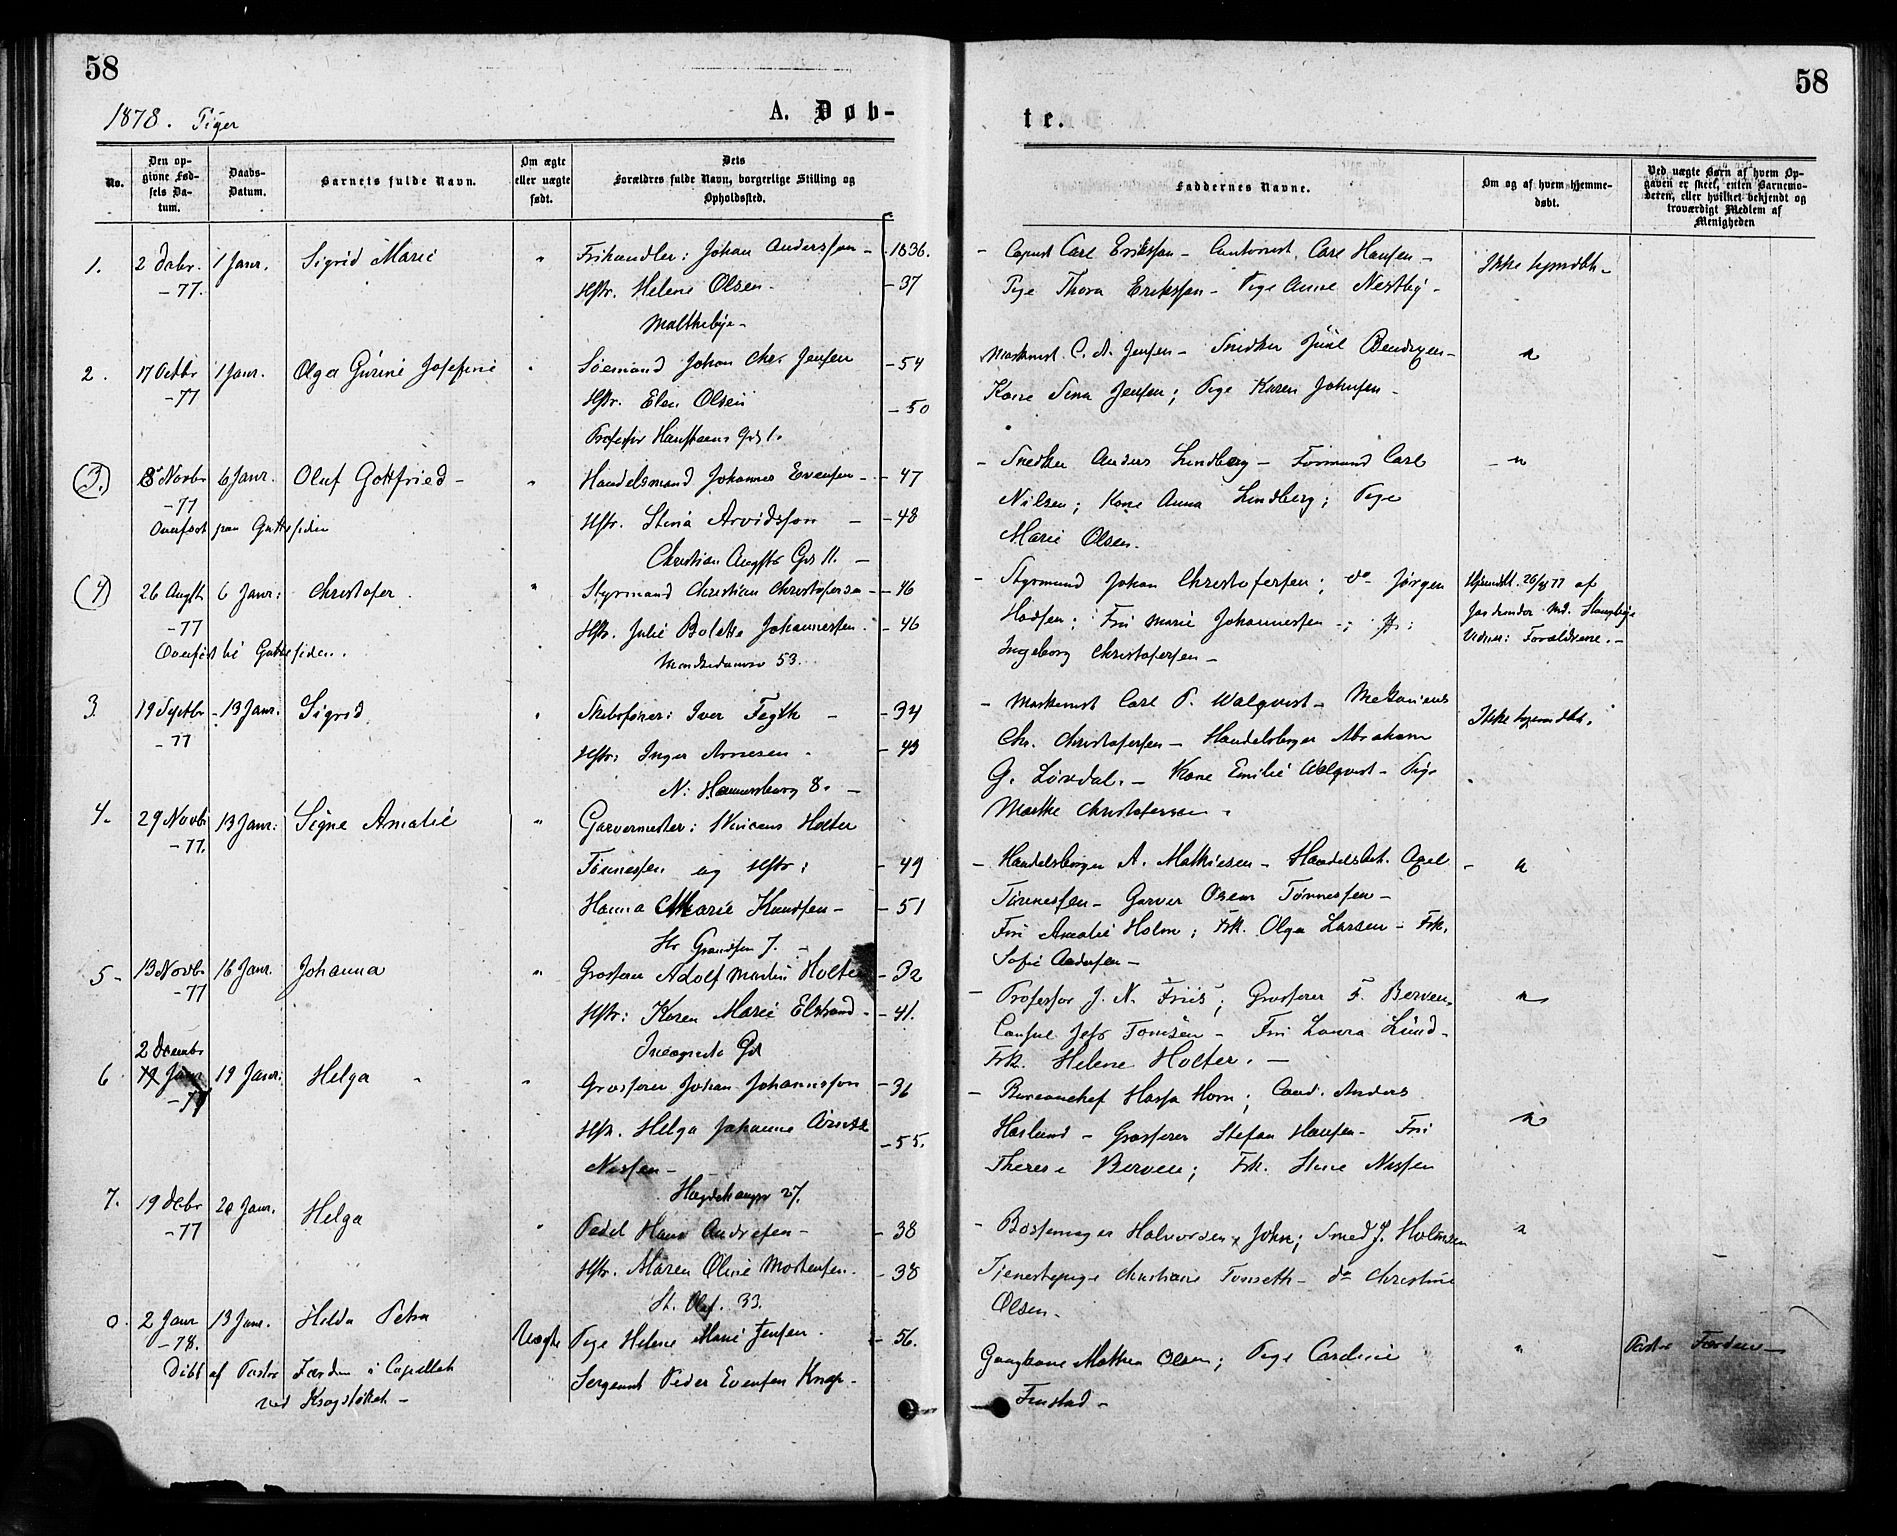 58
58
1878. Piger
A. Døb-
te.
No.
Den op-
givne Fød-
sels Da-
tum.
Daabs-
Datum.
Barnets fulde Navn.
Om ægte
eller uægte
født.
Dets
Forældres fulde Navn, borgerlige Stilling og
Opholdssted.
Faddernes Navne.
Om og af hvem hjemme-
døbt.
Ved uægte Børn af hvem Op-
gaven er skeet, enten Barnemo-
deren, eller hvilket bekjendt og
troværdigt Medlem af
Menigheden
1. 2 Decbr. 1 Janr. Sigrid Marie " Frihandler: Johan Anderssen - 1836.
-77.
Hstr. Helene Olsen. - 37
Malthebye -
- Carl Eriksen - Carl Hansen -
Pige Thora Eriksen - Pige Anne Nestby -
Ikke hjmdbt. -
2. 17 Octbr 1 Janr. Olga Gurine Josefine " Sømand Johan Chr. Jensen - 54
-77
Hstr. Elen Olsen - 50
Professor Hansteens Gd 1.
C. A. Jensen - Snedker Juul Bendixen -
Kone Lina Jensen; Pige Karen Johnsen -
"
(3.) 8 Novbr 6 Janr. Oluf Gottfried - " Handelsmand Johannes Evensen - - 47
-77
Overført paa Guttesiden
Hstr. Stina Arvidsson - - 48
Christian Augsts Gd 11. -
- Snedker Anders Lindberg - Formand Carl
Nilsen; Kone Anna Lindberg; Pige
Marie Olsen.
- "
(4) 26 Augst 6 Janr: Christofer. " Styrmand Christian Christofersen - - 46
-77
Overført til Guttesiden.
Hstr. Julie Bolette Johannessen. - 46
53.
- Styrmand Johan Christofersen; do Jørgen
Hadsen; Fru Marie Johannessen -;
Ingeborg Christofersen -
Hjemdbt. 26/8 77 af
Jordemdor Md. Stangebye
Vidner: Forældrene. -
3. 19 Septbr - 13 Janr. Sigrid. " Skibsfører: Iver Fegth - - 34
-77
Hstr: Inger Arnesen. - 43
N: Hammersborg 8. -
- Maskinist Carl P. Walqvist - Mekanicus
Chr. Christofersen - Handelsborger Abraham
G. Løvdal. - Kone Emilie Walqvist - Pige
Marthe Christofersen.
Ikke hjemdbt.
4. 29 Novbr 13 Janr: Signe Amalie " Garvermester: Vincens Holter
-77.
Tønnesen og Hstr: - 49
Hanna Marie Knudsen - - 51
St. Grændsen 7. -
- Handelsborger A. Mathiesen - Handelsbet. Axel
Tønnessen - Garver Oscar Tønnessen -
Fru Amalie Holm; Frk. Olga Larsen - Frk.
Sofie Andersen -
- "
5 - 13 Novbr 16 Janr. Johanna " Grosserer Adolf Martin Holter - 32
-77
Hstr: Karen Marie Elstrand - - 41.
Incognito Gd
- Professor J. N. Friis; Grosserer F. Berven.
Consul Jess Tomsen - Fru Laura Lund -
Frk. Helene Holter. -
"
2 Decembr
6 19 Janr: Helga " Grosserer Johan Johannson - 36
Hstr. Helga Johanne - 55.
Nissen -
Hægdehaugsv 27.
- Bureauchef Hassa Horn; Cand. Anders
Haslund - Grosserer Stefan Hansen - Fru
Therese Berven; Frk. Stine Nissen
"
7. 19 Decbr 20 Janr. Helga " Pedel Hans Andresen - - 38
-77
Hstr. Maren Oline Mortensen. - 38
St. Olaf. 33.
- Bøssemager Halvorsen, John; Smed J. Holmsen
Tjenestepige Christiane Tonseth - do Christine
Olsen -
"
0. 2 Janr 13 Janr. Hilda Petra Uægte Pige Helene Marie Jensen. - 56.
-78.
Døbt af Pastor Færden i Capellet
ved Krogstøtten -
Sergeant Peder Evensen
Gangkone Mathea Olsen; Pige Caroline
Finstad -
"
Pastor Færden -